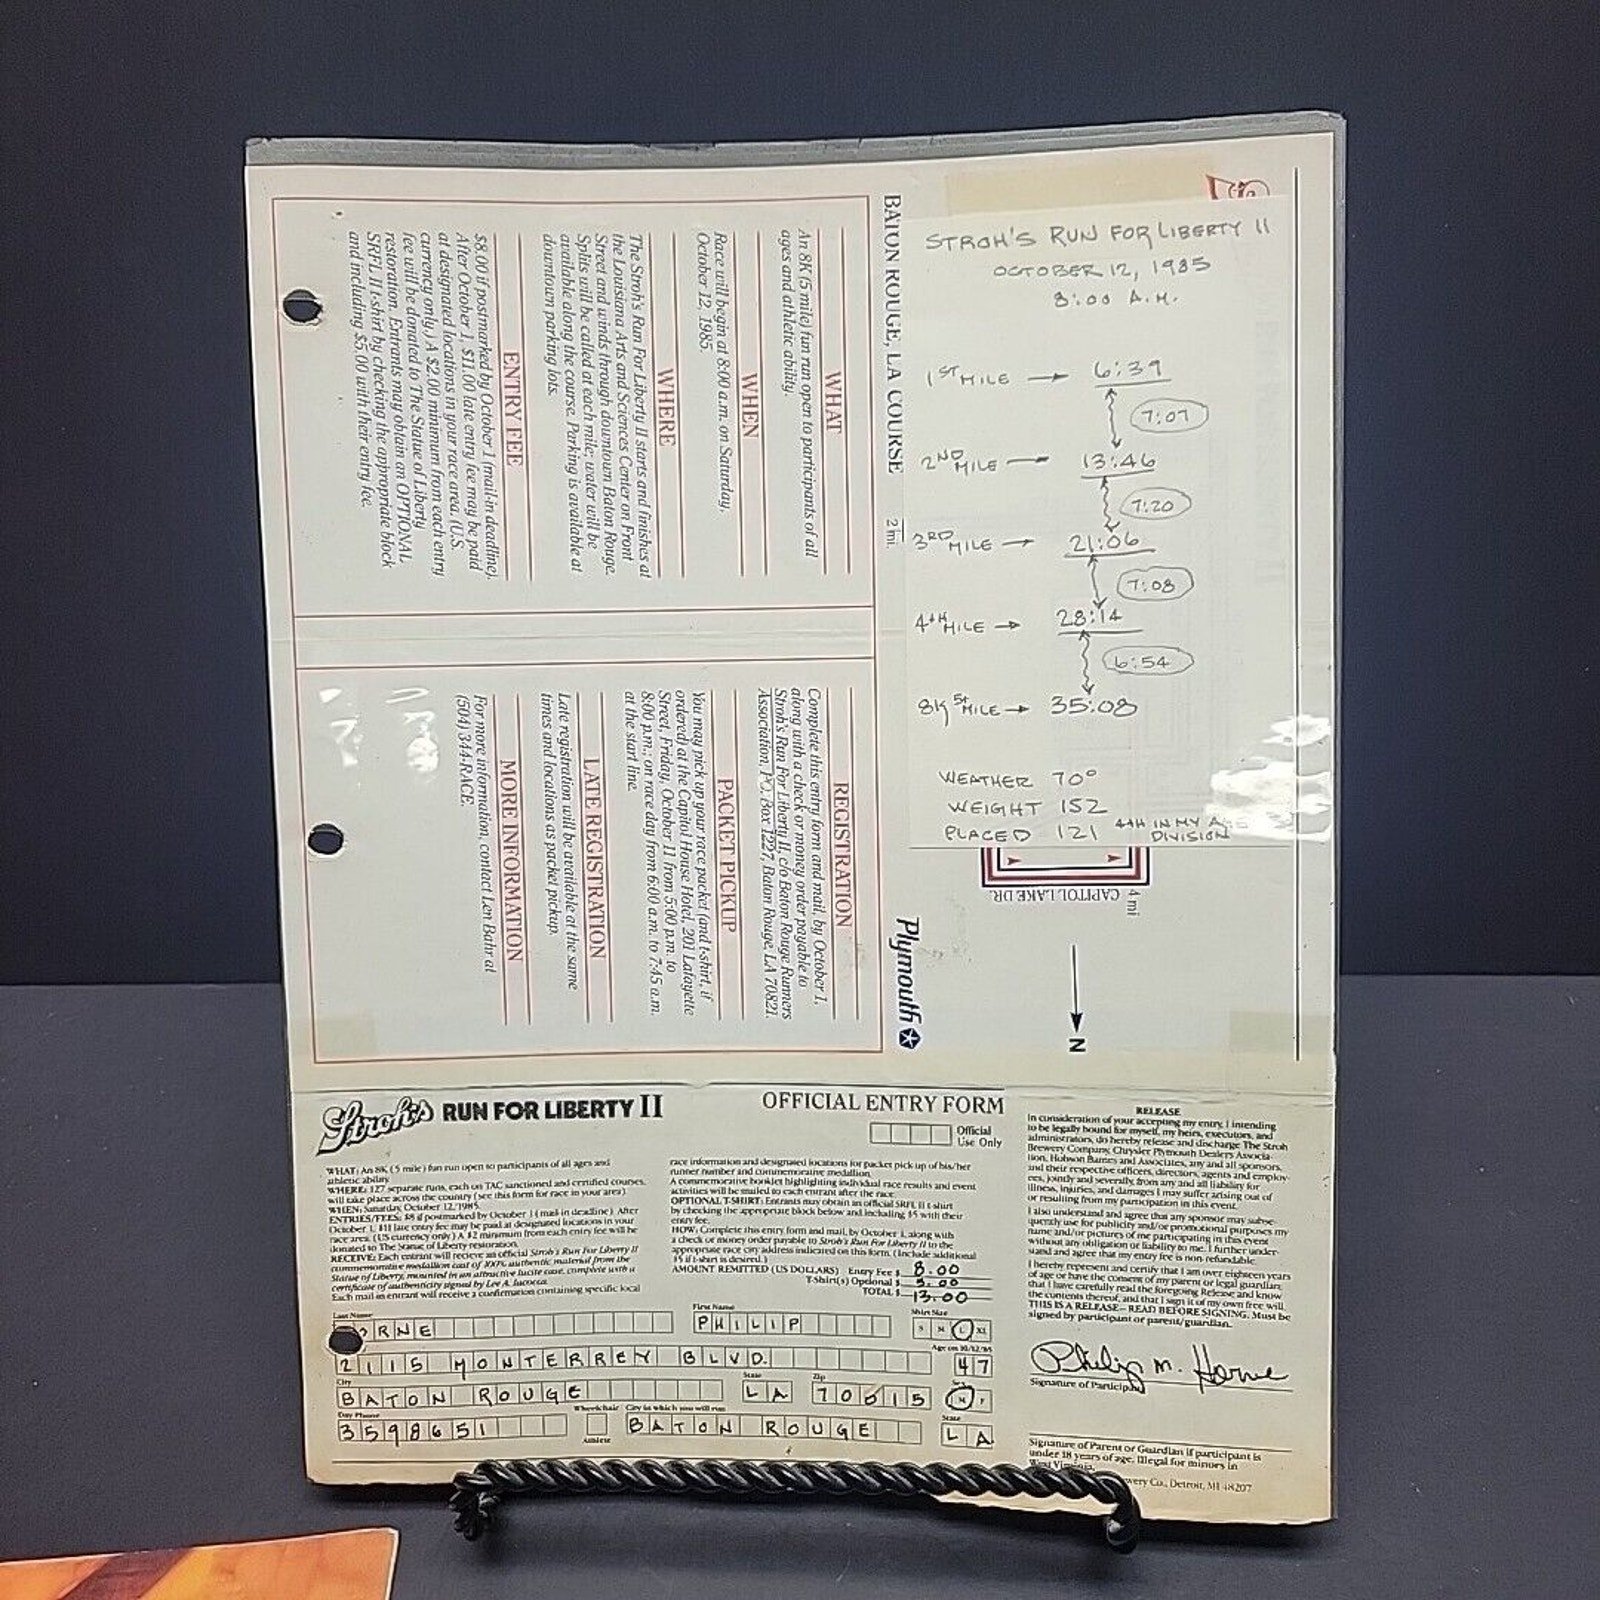 STROH'S RUN FOR LIBERTY II
OCTOBER 12, 1985
8:00 A.M.
1ST MILE → 6:39
7:07
2ND MILE → 13:46
7:20
3RD MILE → 21:06
7:08
4TH MILE → 28:14
6:54
8K 5th MILE → 35:08
WEATHER 70°
WEIGHT 152
PLACED 121 4TH IN MY
DIVISION
BATON ROUGE, LA COURSE
2 mi.
4 mi
CAPITOL LAKE DR.
N
Plymouth
WHAT
An 8K (5 mile) fun run open to participants of all
ages and athletic ability.
WHEN
Race will begin at 8:00 a.m. on Saturday,
October 12, 1985.
WHERE
The Stroh's Run For Liberty II starts and finishes at
the Louisiana Arts and Sciences Center on Front
Street and winds through downtown Baton Rouge.
Splits will be called at each mile; water will be
available along the course. Parking is available at
downtown parking lots.
ENTRY FEE
$8.00 if postmarked by October 1 (mail-in deadline).
After October 1, $11.00 late entry fee may be paid
at designated locations in your race area. (U.S.
currency only.) A $2.00 minimum from each entry
fee will be donated to The Statue of Liberty
restoration. Entrants may obtain an OPTIONAL
SRFL II t-shirt by checking the appropriate block
and including $5.00 with their entry fee.
REGISTRATION
Complete this entry form and mail, by October 1,
along with a check or money order payable to
Stroh's Run For Liberty II, c/o Baton Rouge Runners
Association, P.O. Box 1227, Baton Rouge, LA 70821.
PACKET PICKUP
You may pick up your race packet (and t-shirt, if
ordered) at the Capitol House Hotel, 201 Lafayette
Street, Friday, October 11 from 5:00 p.m. to
8:00 p.m., on race day from 6:00 a.m. to 7:45 a.m.
at the start line.
LATE REGISTRATION
Late registration will be available at the same
times and locations as packet pickup.
MORE INFORMATION
For more information, contact Len Bahr at
(504) 344-RACE.
Stroh's RUN FOR LIBERTY II
OFFICIAL ENTRY FORM
Official
Use Only
WHAT: An 8K (5 mile) fun run open to participants of all ages and
athletic ability.
WHERE: 127 separate runs, each on TAC sanctioned and certified courses,
will take place across the country (see this form for race in your area).
WHEN: Saturday, October 12, 1985.
ENTRIES/FEES: $8 if postmarked by October 1 (mail-in deadline). After
October 1, $11 late entry fee may be paid at designated locations in your
race area. (US currency only) A $2 minimum from each entry fee will be
donated to The Statue of Liberty restoration.
RECEIVE: Each entrant will receive an official Stroh's Run For Liberty II
commemorative medallion cast of 100% authentic material from the
Statue of Liberty, mounted in an attractive lucite case, complete with a
certificate of authenticity signed by Lee A. Iacocca.
Each mail-in entrant will receive a confirmation containing specific local
race information and designated locations for packet pick up of his/her
runner number and commemorative medallion.
A commemorative booklet highlighting individual race results and event
activities will be mailed to each entrant after the race.
OPTIONAL T-SHIRT: Entrants may obtain an official SRFL II t-shirt
by checking the appropriate block below and including $5 with their
entry fee.
HOW: Complete this entry form and mail, by October 1, along with
a check or money order payable to Stroh's Run For Liberty II to the
appropriate race city address indicated on this form. (Include additional
$5 if t-shirt is desired.)
AMOUNT REMITTED (US DOLLARS) Entry Fee $ 8.00
T-Shirt(s) Optional $ 5.00
TOTAL $ 13.00
Last Name
First Name
Shirt Size
ORNE PHILIP S M L XL
Age on 10/12/85
2115 MONTERREY BLVD. 47
City State Zip
BATON ROUGE LA 70815 M F
Day Phone Wheelchair City in which you will run State
3598651 BATON ROUGE LA
Athlete
RELEASE
In consideration of your accepting my entry, I intending
to be legally bound for myself, my heirs, executors, and
administrators, do hereby release and discharge The Stroh
Brewery Company, Chrysler Plymouth Dealers Associa-
tion, Hobson Barnes and Associates, any and all sponsors,
and their respective officers, directors, agents and employ-
ees, jointly and severally, from any and all liability for
illness, injuries, and damages I may suffer arising out of
or resulting from my participation in this event.
I also understand and agree that any sponsor may subse-
quently use for publicity and/or promotional purposes my
name and/or pictures of me participating in this event
without any obligation or liability to me. I further under-
stand and agree that my entry fee is non-refundable.
I hereby represent and certify that I am over eighteen years
of age or have the consent of my parent or legal guardian,
that I have carefully read the foregoing Release and know
the contents thereof, and that I sign it of my own free will.
THIS IS A RELEASE—READ BEFORE SIGNING. Must be
signed by participant or parent/guardian.
Philip M. Horne
Signature of Participant
Signature of Parent or Guardian if participant is
under 18 years of age. Illegal for minors in
West Virginia.
wery Co., Detroit, MI 48207